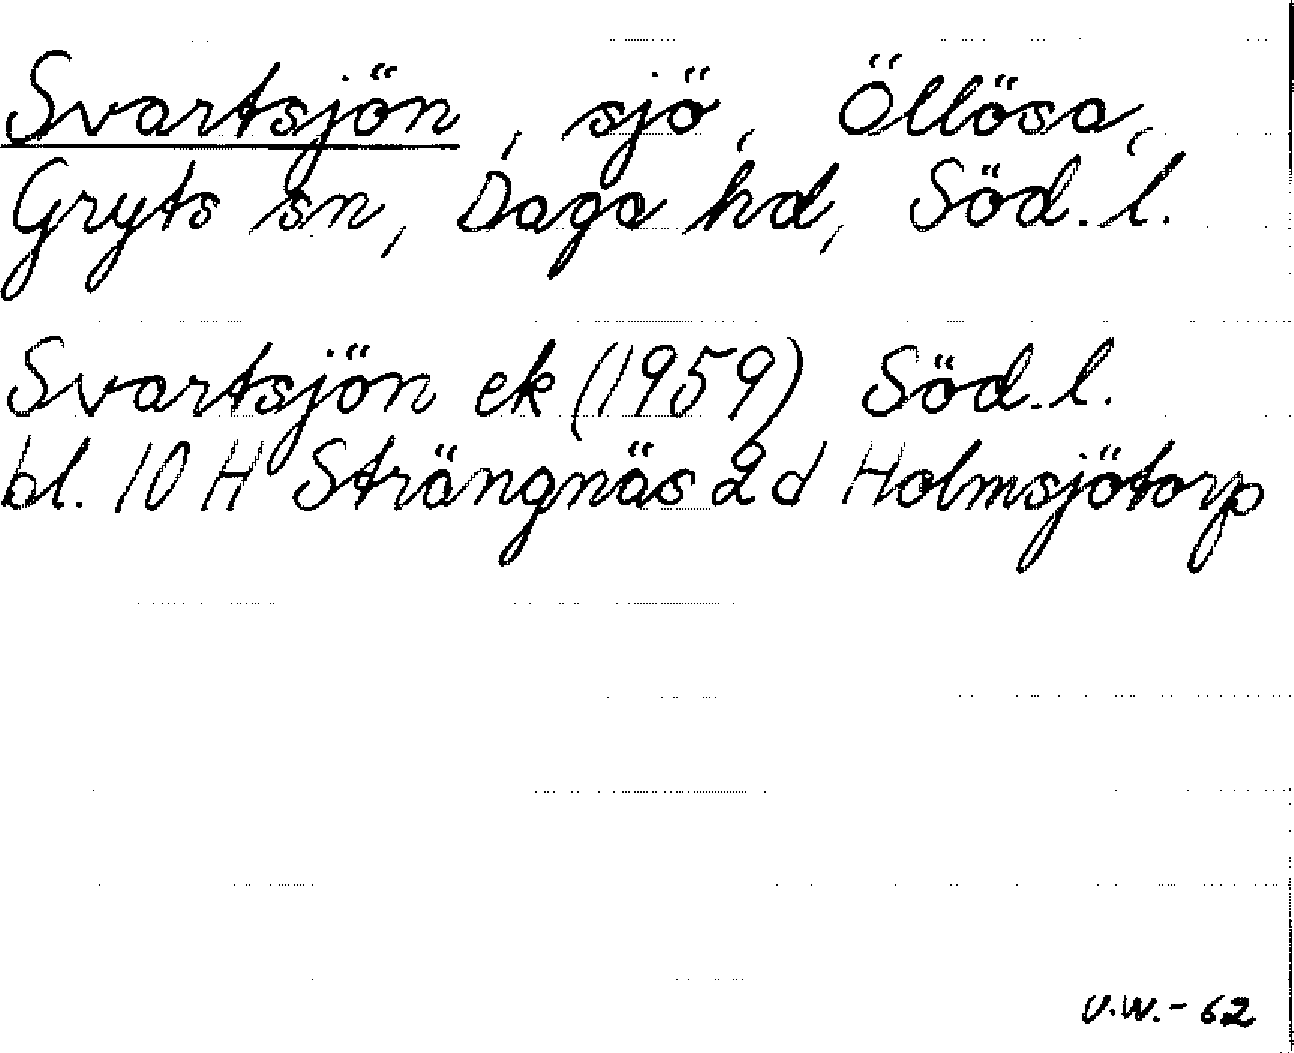 Svartsjön, sjö, Öllösa,
Gryts sn, Daga hd, Söd. l.
Svartsjön ek (1959) Söd. l.
bl. 10 H Strängnäs 2 d Holmsjötorp
U.W.- 62